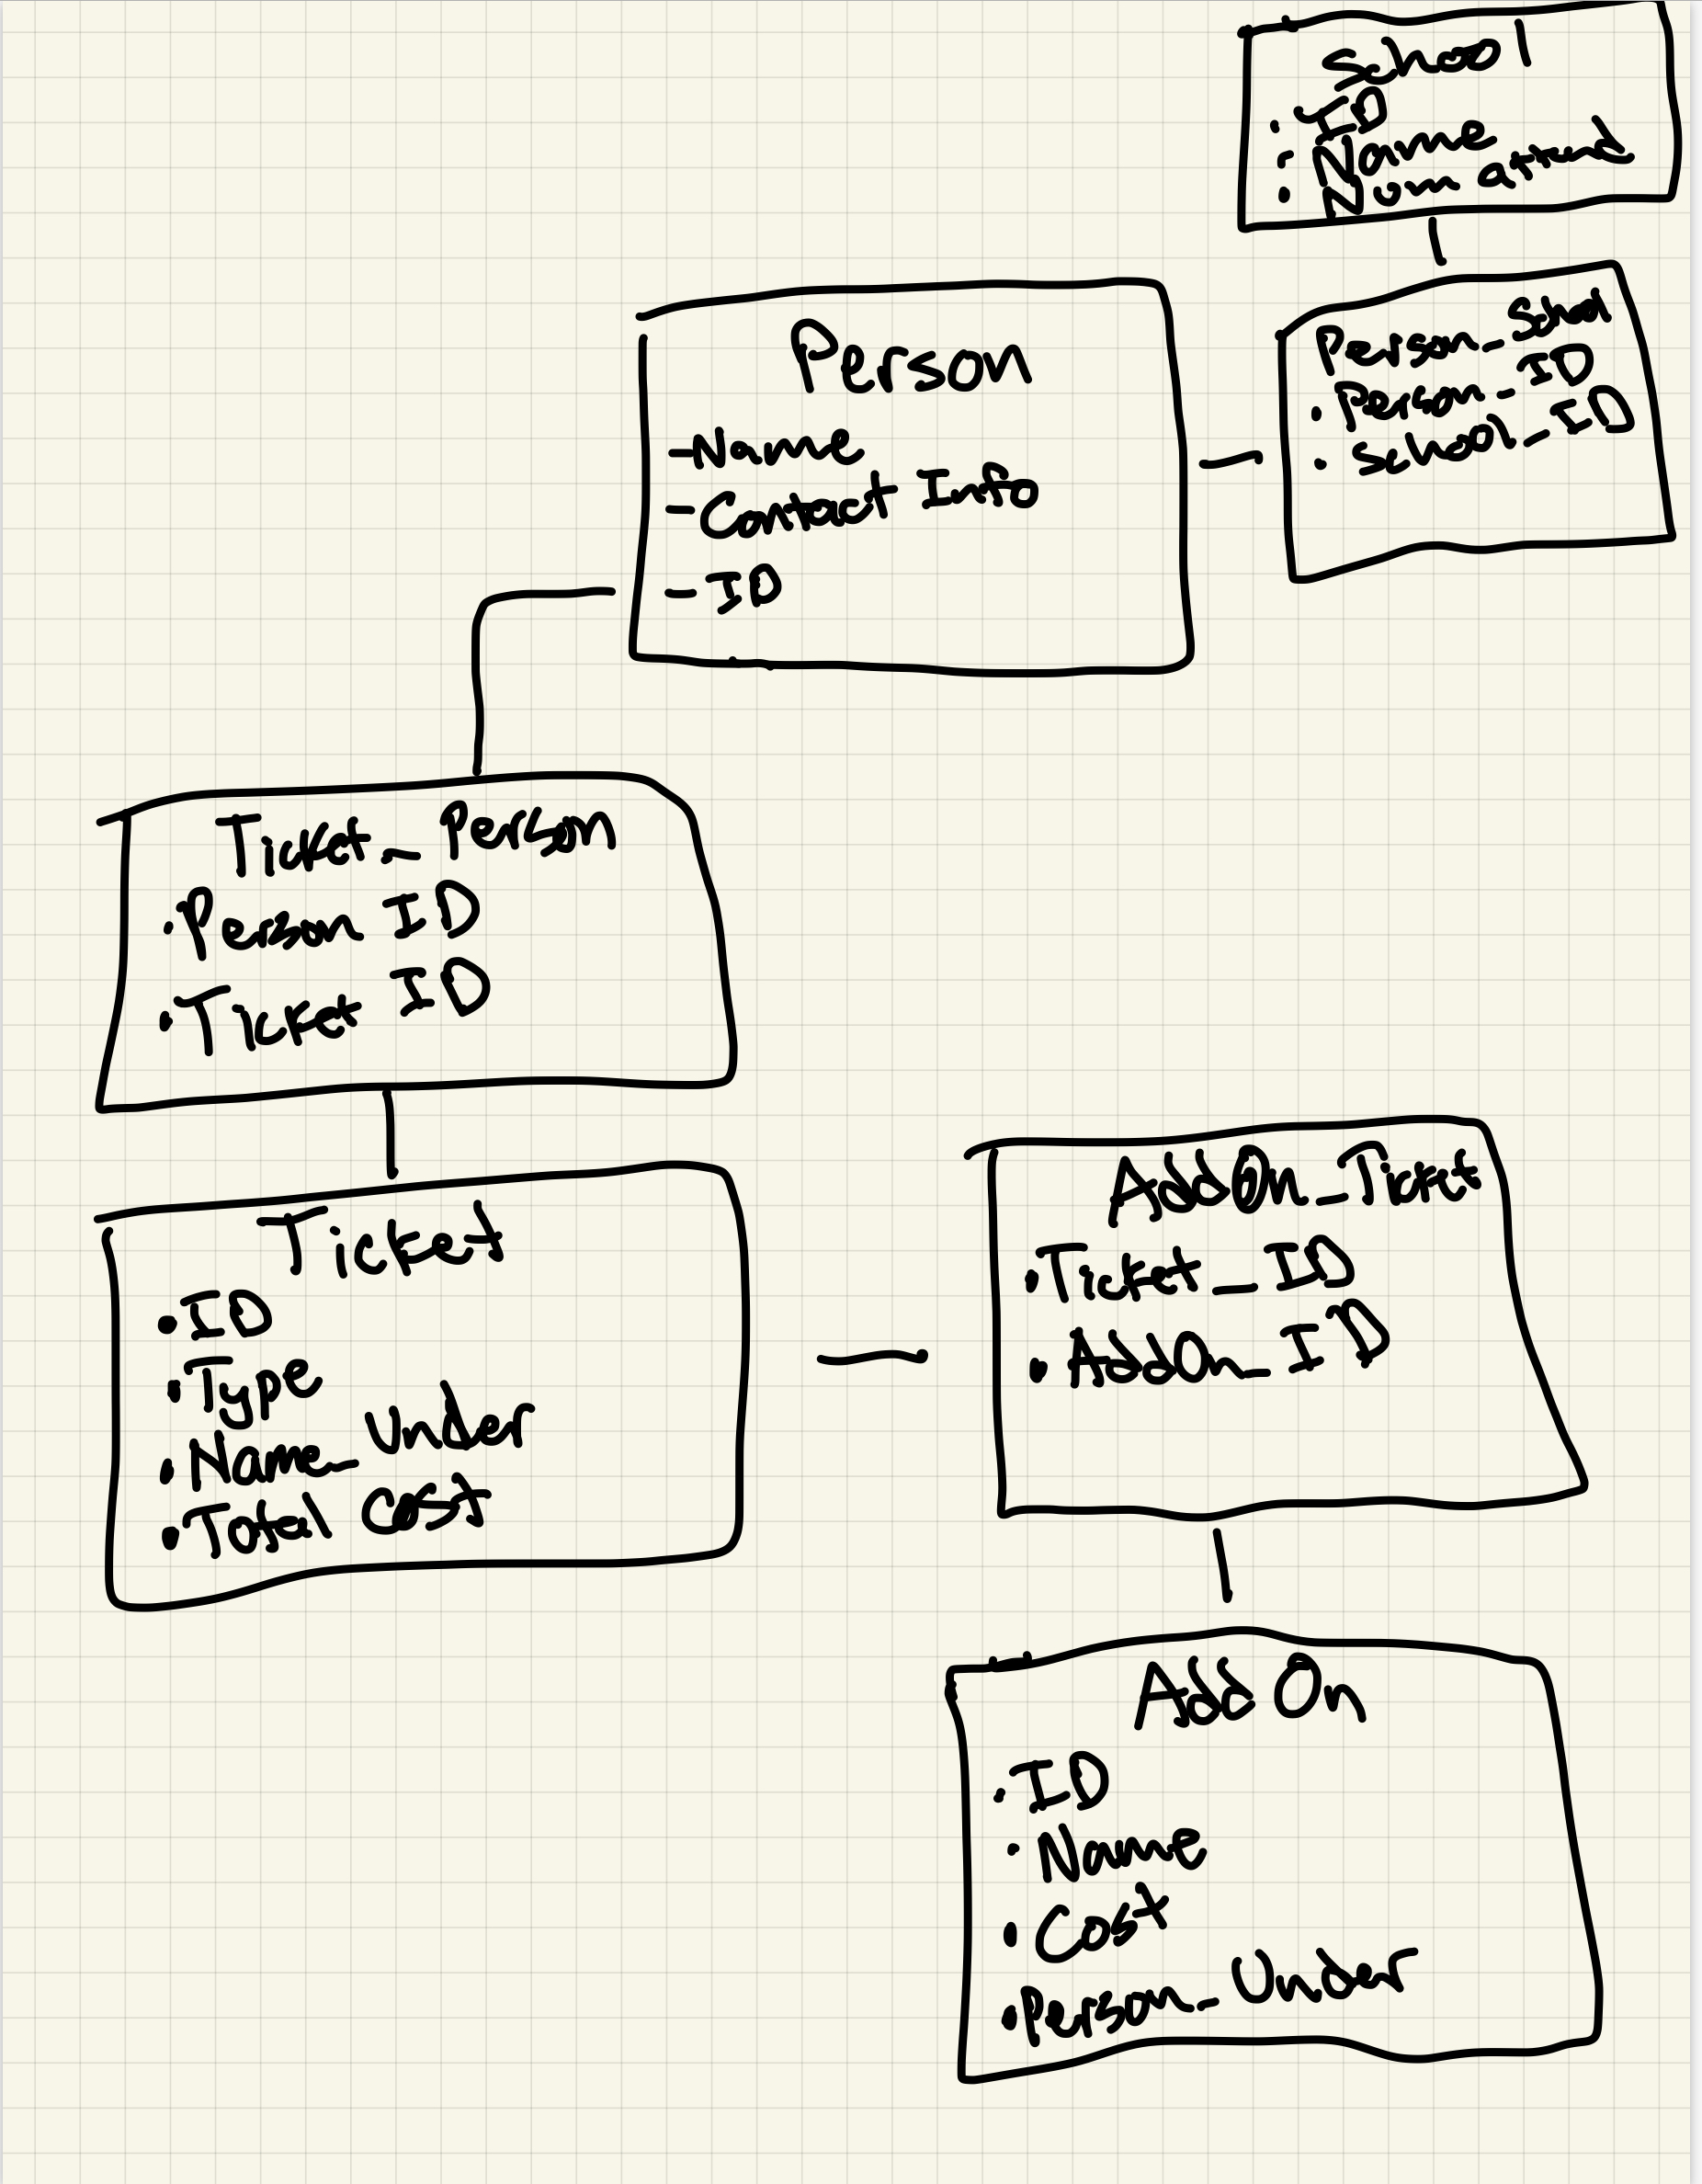 School
· ID
· Name
· Num attend
Person_School
· Person_ID
· School_ID
Person
-Name
-Contact Info
-ID
Ticket_Person
·Person ID
·Ticket ID
Ticket
·ID
·Type
·Name_Under
·Total Cost
AddOn_Ticket
·Ticket_ID
·AddOn_ID
Add On
·ID
·Name
·Cost
·Person_Under